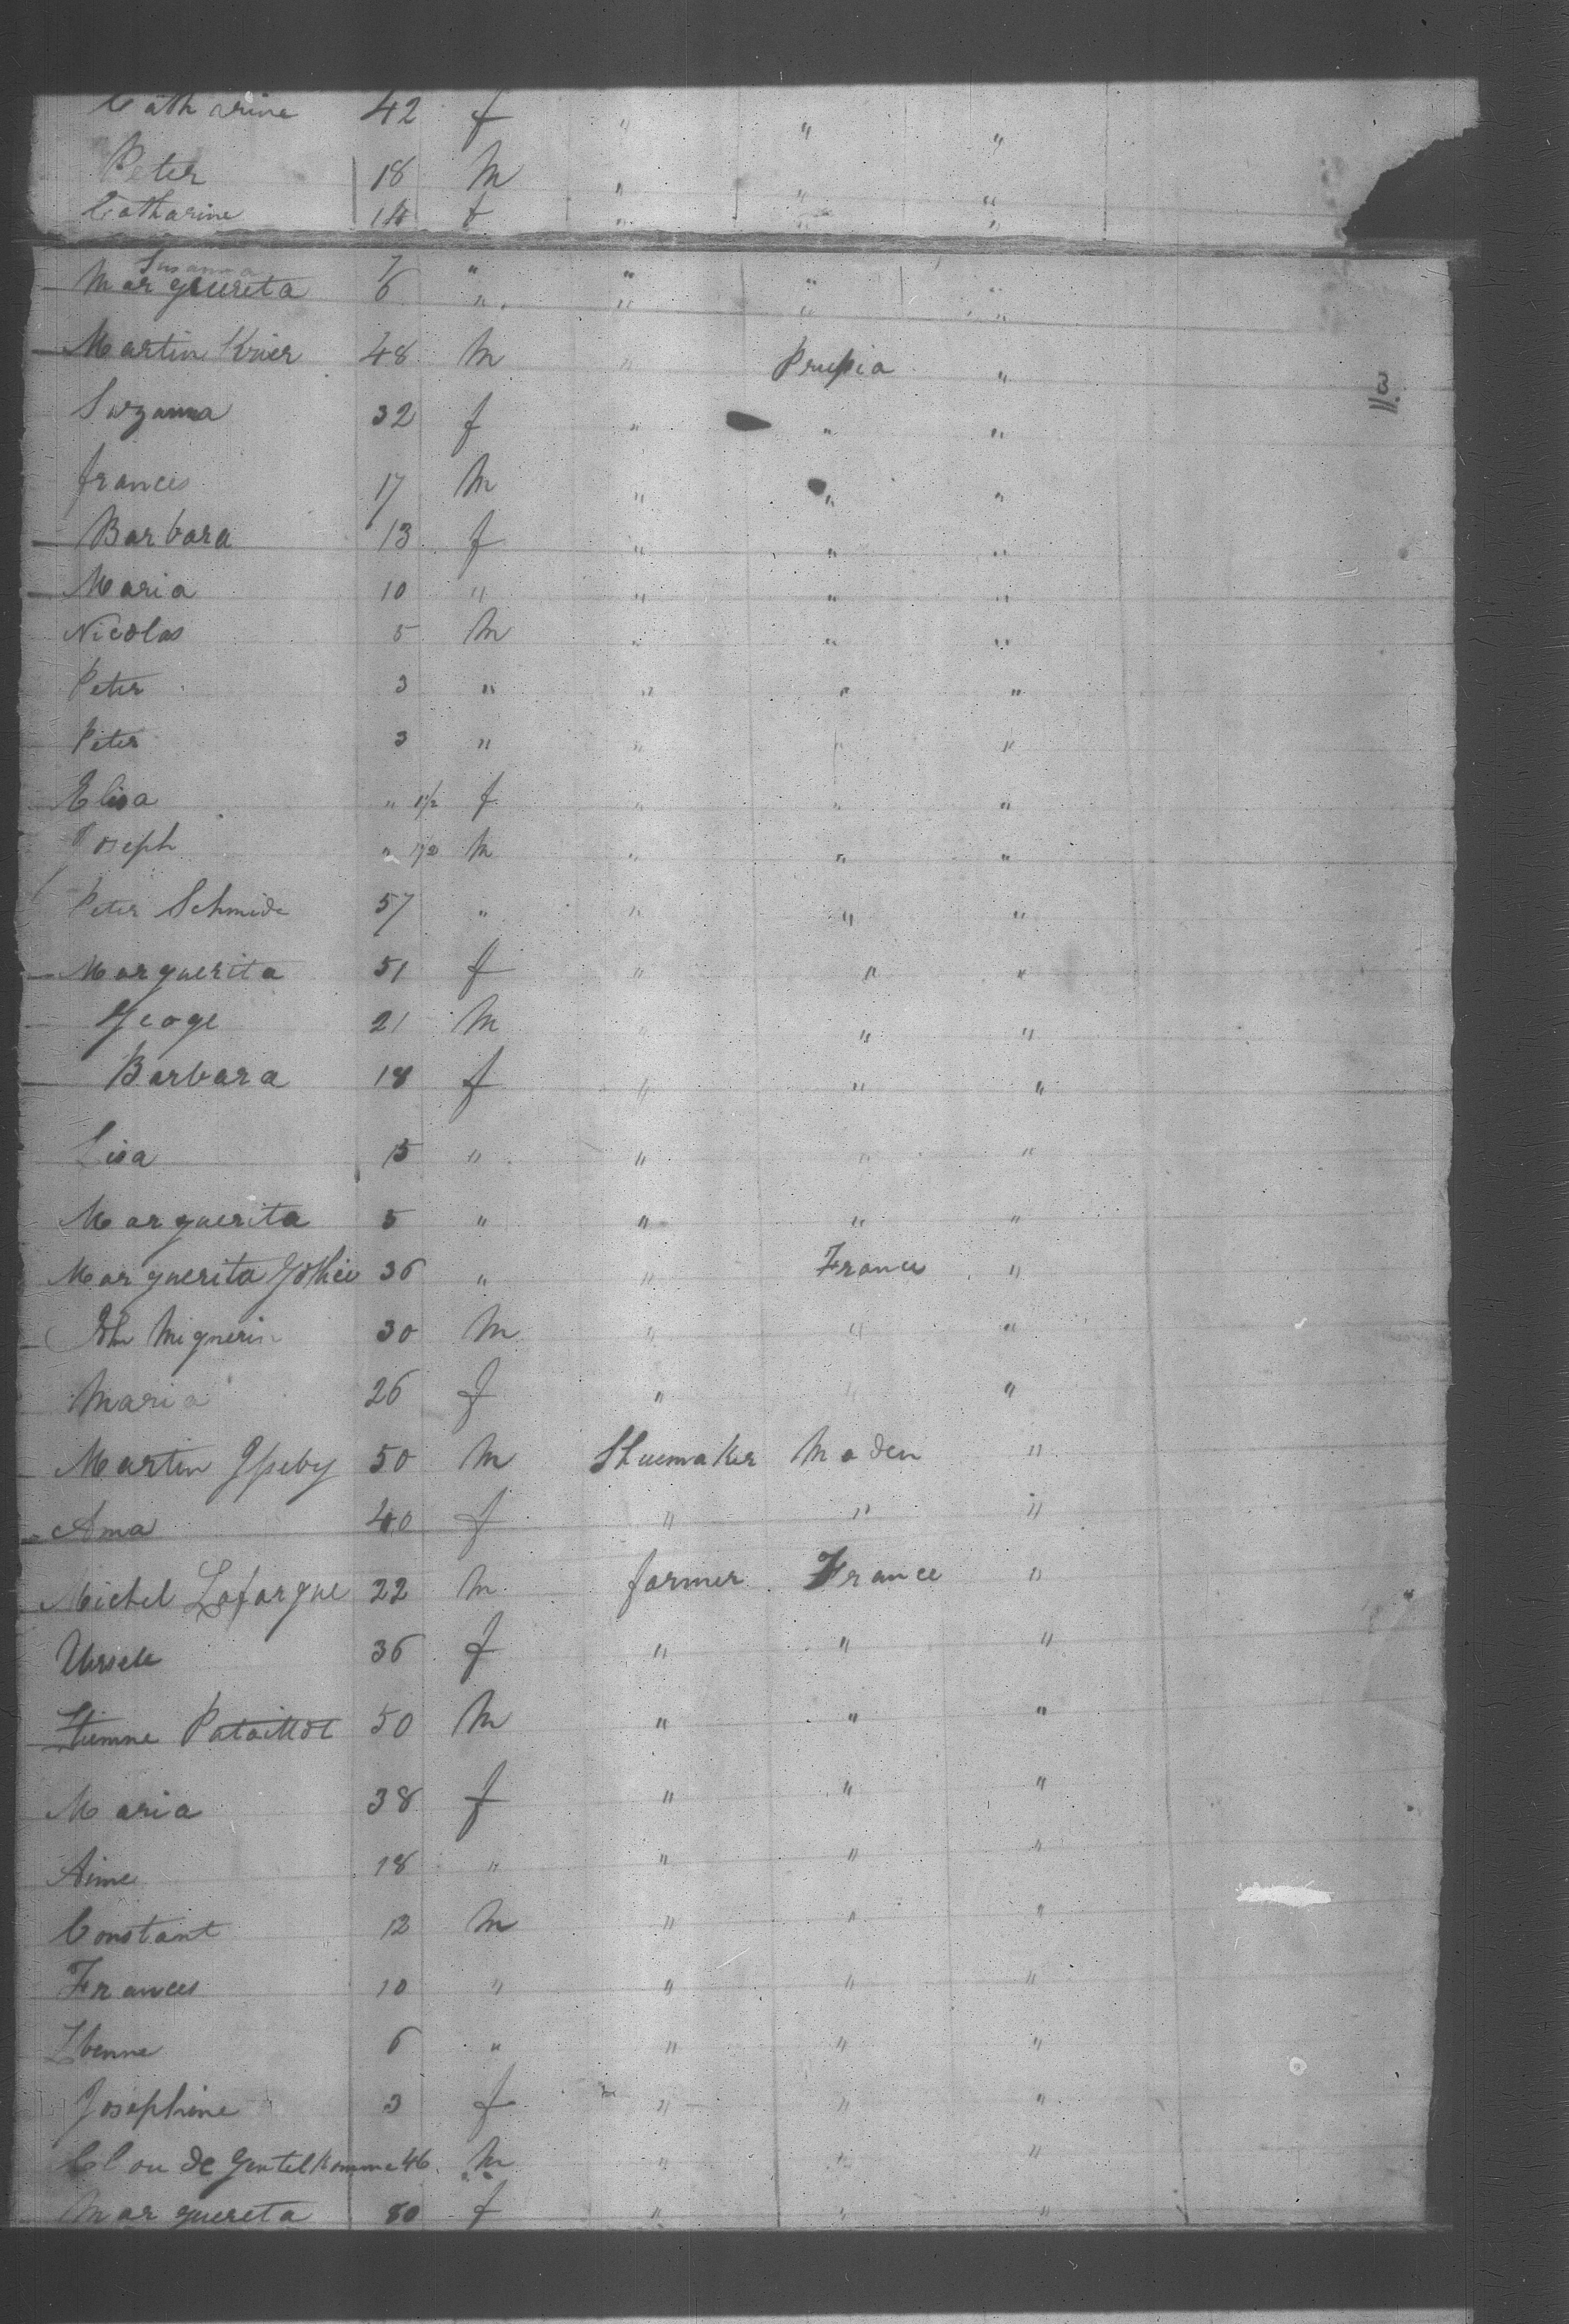 Catharine 42 f " " "
Peter 18 M " " "
Catharine 14 f " " "
Susanna 7 " " " "
Marguereta 6 " " " "
Martin Krier 48 M " Prussia "
3
Suzanna 32 f " " "
frances 17 M " " "
Barbara 13 f " " "
Maria 10 " " " "
Nicolas 5 M " " "
Peter 3 " " " "
Peter 3 " " " "
Elisa " 1/2 f " " "
Joseph " 1/2 M " " "
Peter Schmide 57 " " " "
Marguerita 51 f " " "
Geoge 21 M " " "
Barbara 18 f " " "
Lisa 15 " " " "
Marguerita 5 " " " "
Marguerita 36 " " France "
John Mignerin 30 M " " "
Maria 26 f " " "
Martin 50 M Shuemaker Baden "
Anna 40 f " " "
Michel Lafargue 22 M farmer France "
Ursele 36 f " " "
Etienne Pataillot 50 M " " "
Maria 38 f " " "
Aime 18 " " " "
Constant 12 M " " "
Frances 10 " " " "
Etienne 6 " " " "
Josephine 3 f " " "
Cloude Gentelhomme 46 M " " "
Marguereta 80 f " " "